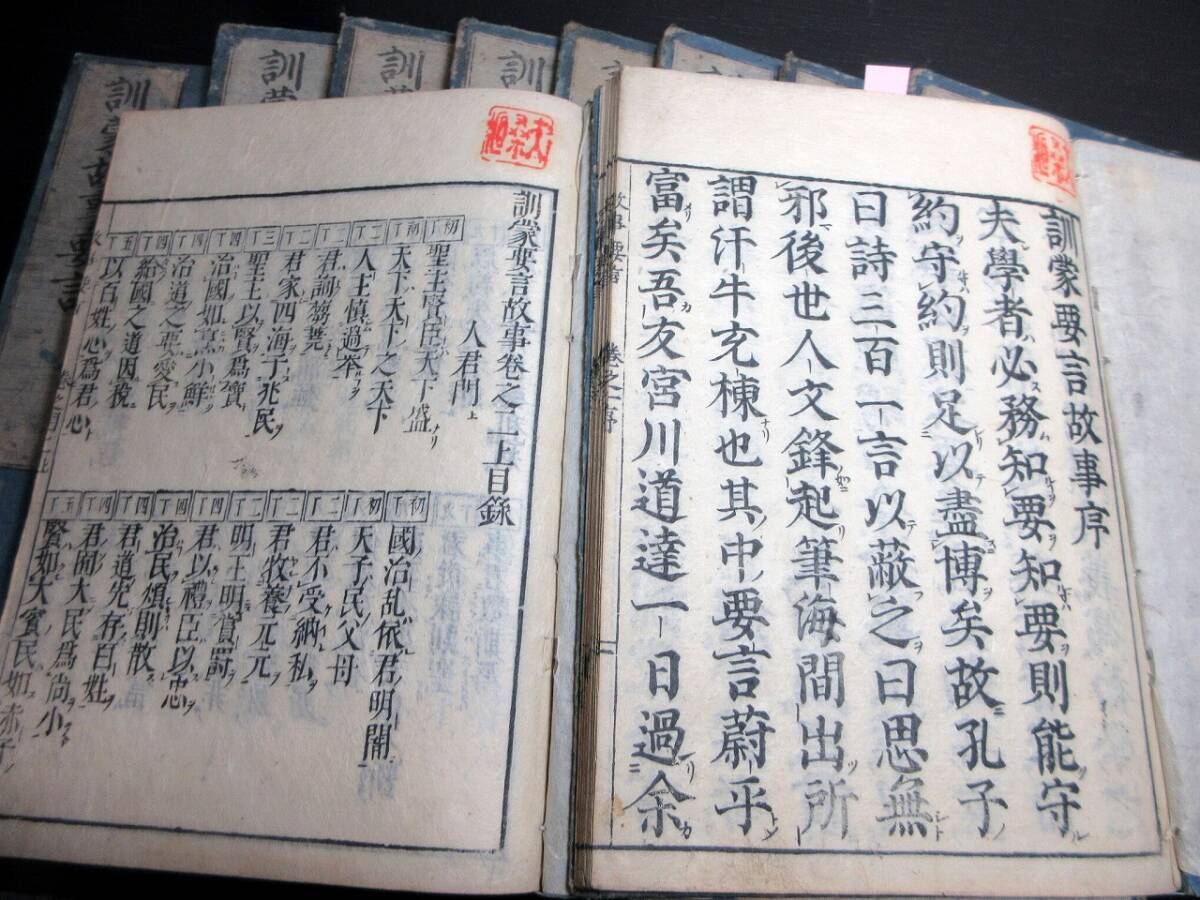 訓蒙要言故事序
夫學者必務知要知要則能守
約守約則足以盡博矣故孔子
曰詩三百一言以蔽之曰思無
邪後世人文鋒起筆海間出所
謂汗牛充棟也其中要言蔚乎
富矣吾友宮川道達一日過余
訓蒙要言故事卷之一上目錄
人君門上
初丁 聖王賢臣天下盛
初丁 天下天下之天下
二丁 人主慎過岺
二丁 君詞蒭蕘
二丁 君家四海子兆民
三丁 聖王以賢爲寶
四丁 治國如烹小鮮
四丁 治道之要愛民
四丁 給國之道因稅
五丁 以百姓心爲君心
初丁 國治乱依君明闇
初丁 天子民父母
二丁 君不受納私
二丁 君牧養元元
二丁 明王明賞罰
四丁 君以禮臣以忠
四丁 治民煩則散
四丁 君道先存百姓
四丁 君固大民爲尚小
五丁 賢如大賓民如赤子
訓蒙故事要言
訓
訓
訓
訓
訓